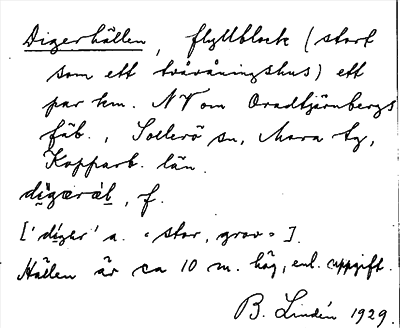 Digerhällen, flyttblock (stort
som ett tvåvåningshus) ett
par km. NV om Oradtjärnbergs
fäb., Sollerö sn, Mora tg,
Kopparb. län.
f.
['digər' a. "stor, grov"].
Hällen är ca 10 m. hög, enl. uppgift.
B. Lindén 1929.